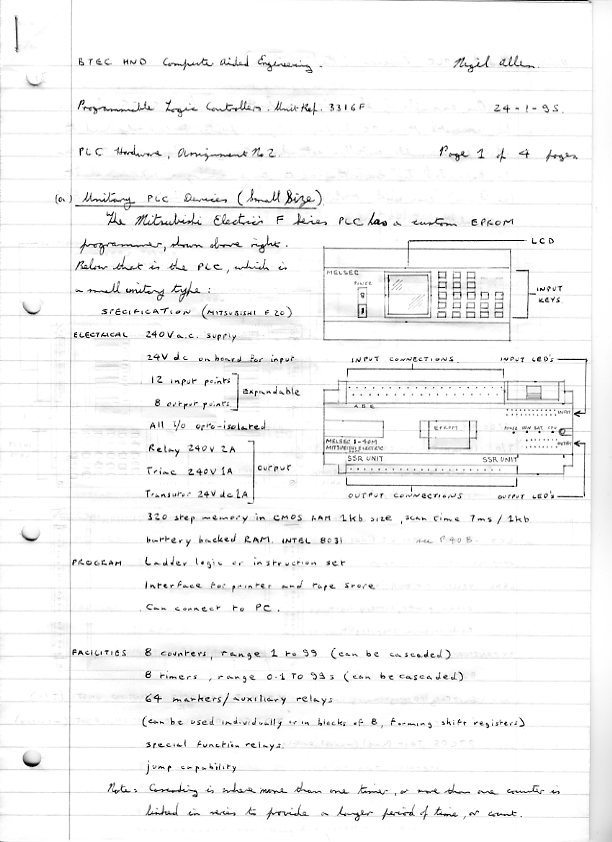 BTEC HND Computer Aided Engineering. Nigel Allen.
Programmable Logic Controllers. Unit Ref. 3316F 24-1-95.
PLC Hardware, Assignment No 2. Page 1 of 4 pages
(a) Unitary PLC Devices (Small Size)
The Mitsubishi Electric's F Series PLC has a custom EPROM
programmer, shown above right.
Below that is the PLC, which is
a small unitary type:
LCD
MELSEC
POWER
INPUT
KEYS
SPECIFICATION (MITSUBISHI F20)
ELECTRICAL 240V a.c. supply
24V dc on board for input
12 input points
8 output points
Expandable
All I/o opto-isolated
Relay 240V 2A
Triac 240V 1A
Transistor 24V dc 1A
output
INPUT CONNECTIONS INPUT LED'S
INPUT
EPROM
MITSUBISHI ELECTRIC
SSR UNIT SSR UNIT
OUTPUT CONNECTIONS OUTPUT LED'S
320 step memory in CMOS RAM 1kb size, scan time 7ms / 1kb
battery backed RAM. INTEL 8031
PROGRAM Ladder logic or instruction set
Interface for printer and tape store
Can connect to PC.
FACILITIES 8 counters, range 1 to 99 (can be cascaded)
8 timers, range 0.1 TO 99s (can be cascaded)
64 markers/auxiliary relays
(can be used individually or in blocks of 8, forming shift registers)
special function relays.
jump capability
Note: Cascading is where more than one timer, or more than one counter is
linked in series to provide a longer period of time, or count.